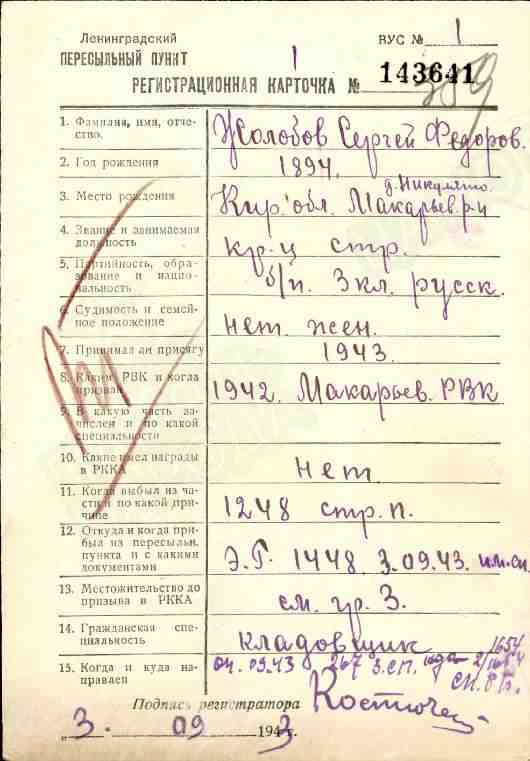 Ленинградский
ПЕРЕСЫЛЬНЫЙ ПУНКТ
ВУС № 1
1
РЕГИСТРАЦИОННАЯ КАРТОЧКА № 143641
1. Фамилия, имя, отче-
ство.
Жолобов Сергей Федоров.
2. Год рождения
1894.
3. Место рождения
д. Никулято.
Кир. обл. Макарьев. р-н
4. Звание и занимаемая
должность
кр-ц стр.
5. Партийность, обра-
зование и нацио-
нальность
б/п. 3 кл. русск.
6. Судимость и семей-
ное положение
нет. жен.
7. Принимал ли присягу
1943.
8. Каким РВК и когда
призван
1942. Макарьев. РВК
9. В какую часть за-
числен и по какой
специальности
10. Какие имел награды
в РККА
нет.
11. Когда выбыл из ча-
сти и по какой при-
чине
1248 стр. п.
12. Откуда и когда при-
был из пересыльн.
пункта и с какими
документами
Э.Г. 1448. 3.09.43. им. сп.
13. Местожительство до
призыва в РККА
см. гр. 3.
14. Гражданская спе-
циальность
кладовщик
15. Когда и куда на-
правлен
04. 09.43 267 З.СП.
Подпись регистратора
„3. 09 1943 г.